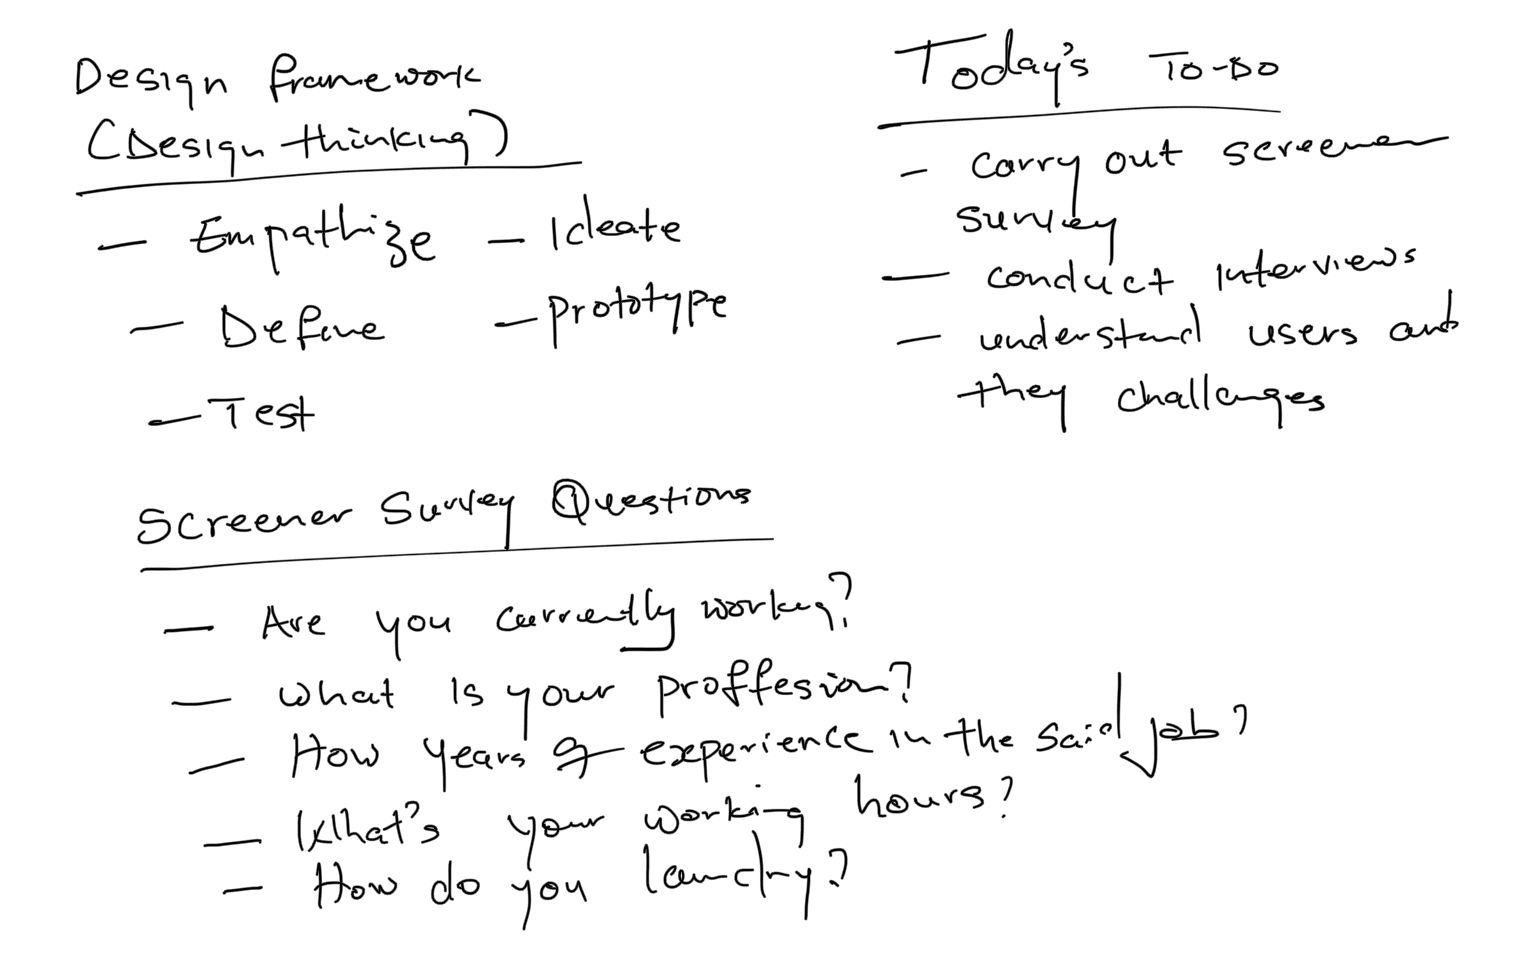 Design framework
(Design thinking)
— Empathize — Ideate
— Define — Prototype
— Test
Today's To-Do
— Carry out screener
survey
— conduct interviews
— understand users and
they challenges
Screener Survey Questions
— Are you currently working?
— What is your proffesion?
— How years of experience in the said job?
— What's your working hours?
— How do you laundry?